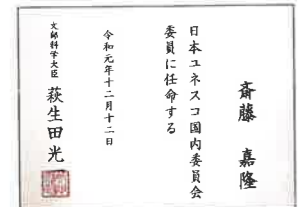 斎藤 嘉隆
日本ユネスコ国内委員会
委員に任命する
令和元年十二月十二日
文部科学大臣 萩生田光